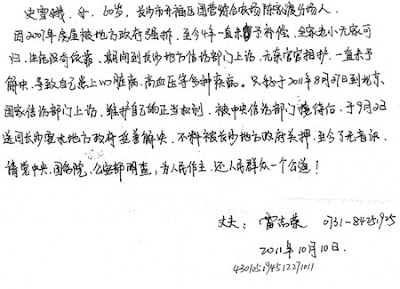 史雪娥，女，60岁，长沙市开福区国营综合农场陈家渡分场人。
因2007年房屋被地方政府强拆，至今4年一直未予补偿，全家老小无家可
归，生活没有依靠，期间到长沙地方信访部门上访，无奈官官相护，一直未予
解决，导致自己患上心脏病，高血压等多种疾病。又于2011年8月27日到北京
国家信访部门上访，维护自己的正当权利，被中央信访部门接待后，于9月2日
送回长沙要求地方政府妥善解决，不料被长沙地方政府关押，至今了无音讯。
请党中央、国务院、公安部调查，为人民作主，还人民群众一个公道！
丈夫：雷志荣 0731-84251925
2011年10月10日.
430105194512271011